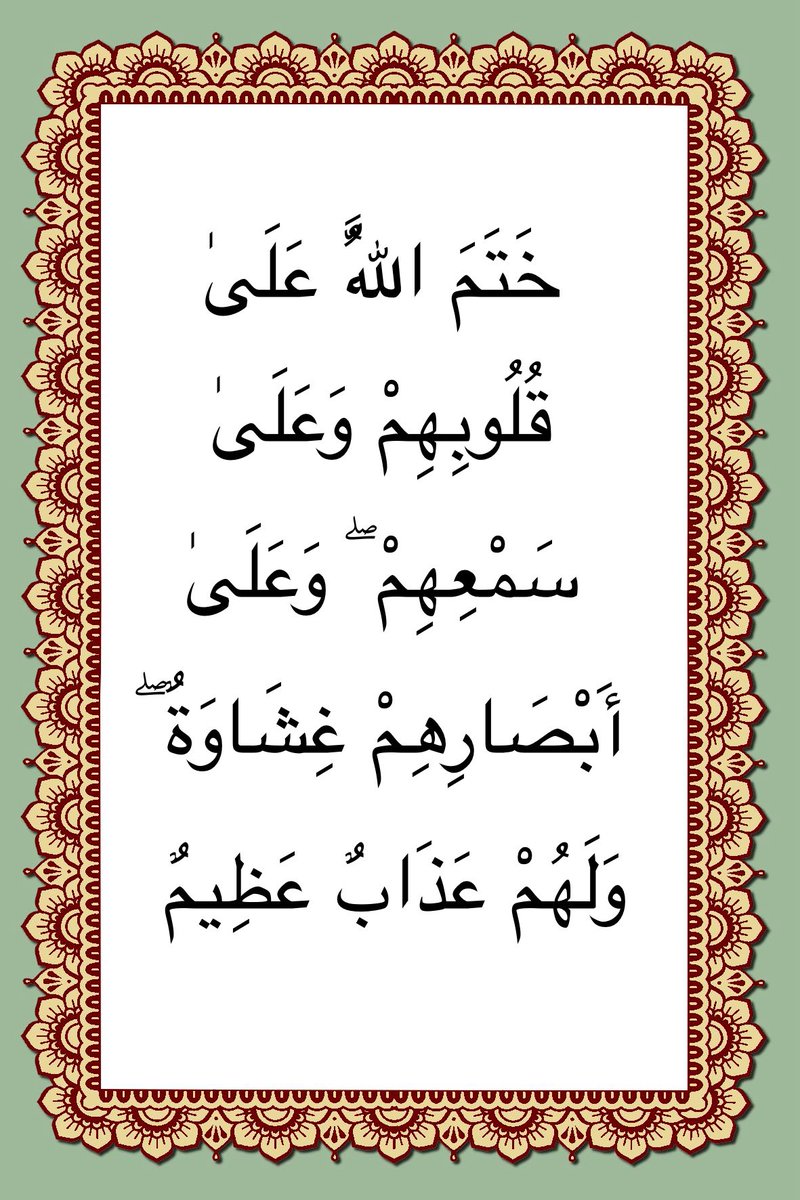 خَتَمَ اللَّهُ عَلَىٰ
قُلُوبِهِمْ وَعَلَىٰ
سَمْعِهِمْ ۖ وَعَلَىٰ
أَبْصَارِهِمْ غِشَاوَةٌ ۖ
وَلَهُمْ عَذَابٌ عَظِيمٌ